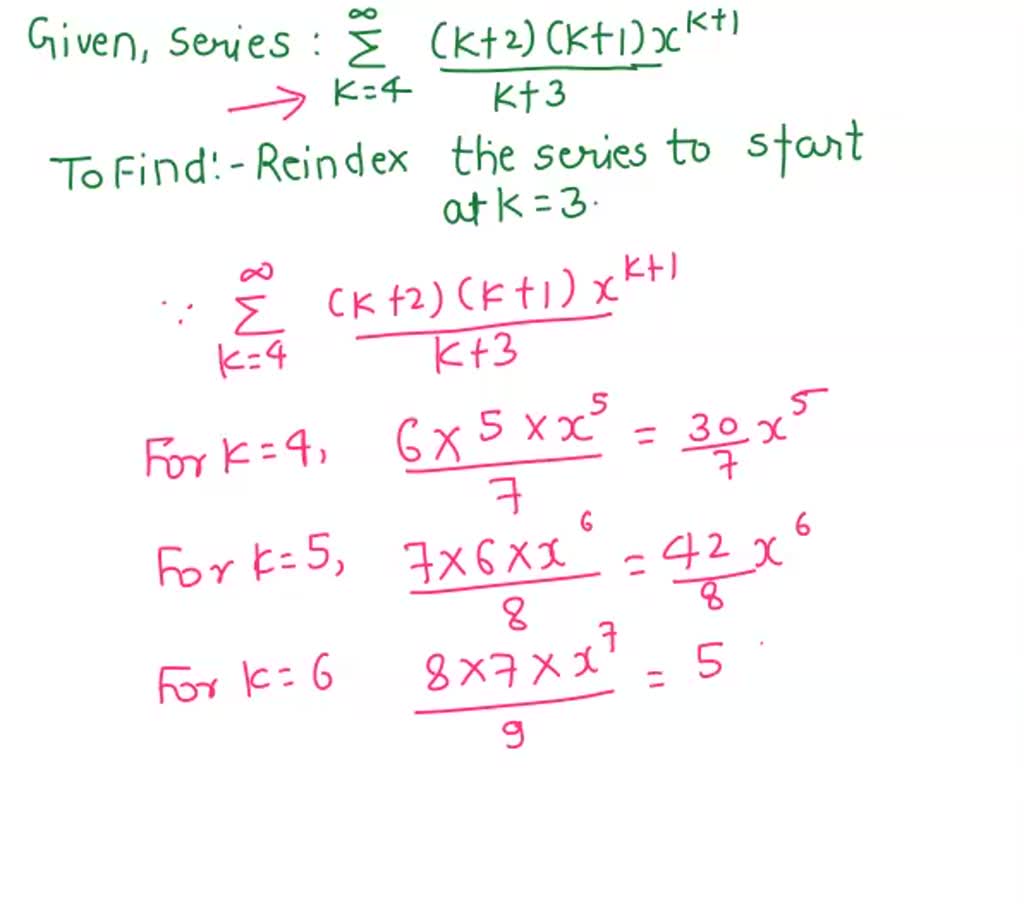 Given, series : ∞ Σ k=4 (k+2)(k+1)x^{k+1} / k+3
To Find:- Reindex the series to start
at k=3.
∵ ∞ Σ k=4 (k+2)(k+1)x^{k+1} / k+3
For k=4, 6×5×x^5 / 7 = 30/7 x^5
For k=5, 7×6×x^6 / 8 = 42/8 x^6
For k=6 8×7×x^7 / 9 = 5